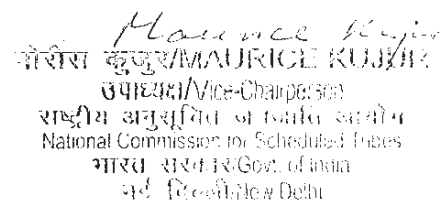 Maurice Kujur
मोरीस कुजुर/MAURICE KUJUR
उपाध्यक्ष/Vice-Chairperson
राष्ट्रीय अनुसूचित जनजाति आयोग
National Commission for Scheduled Tribes
भारत सरकार/Govt. of India
नई दिल्ली/New Delhi